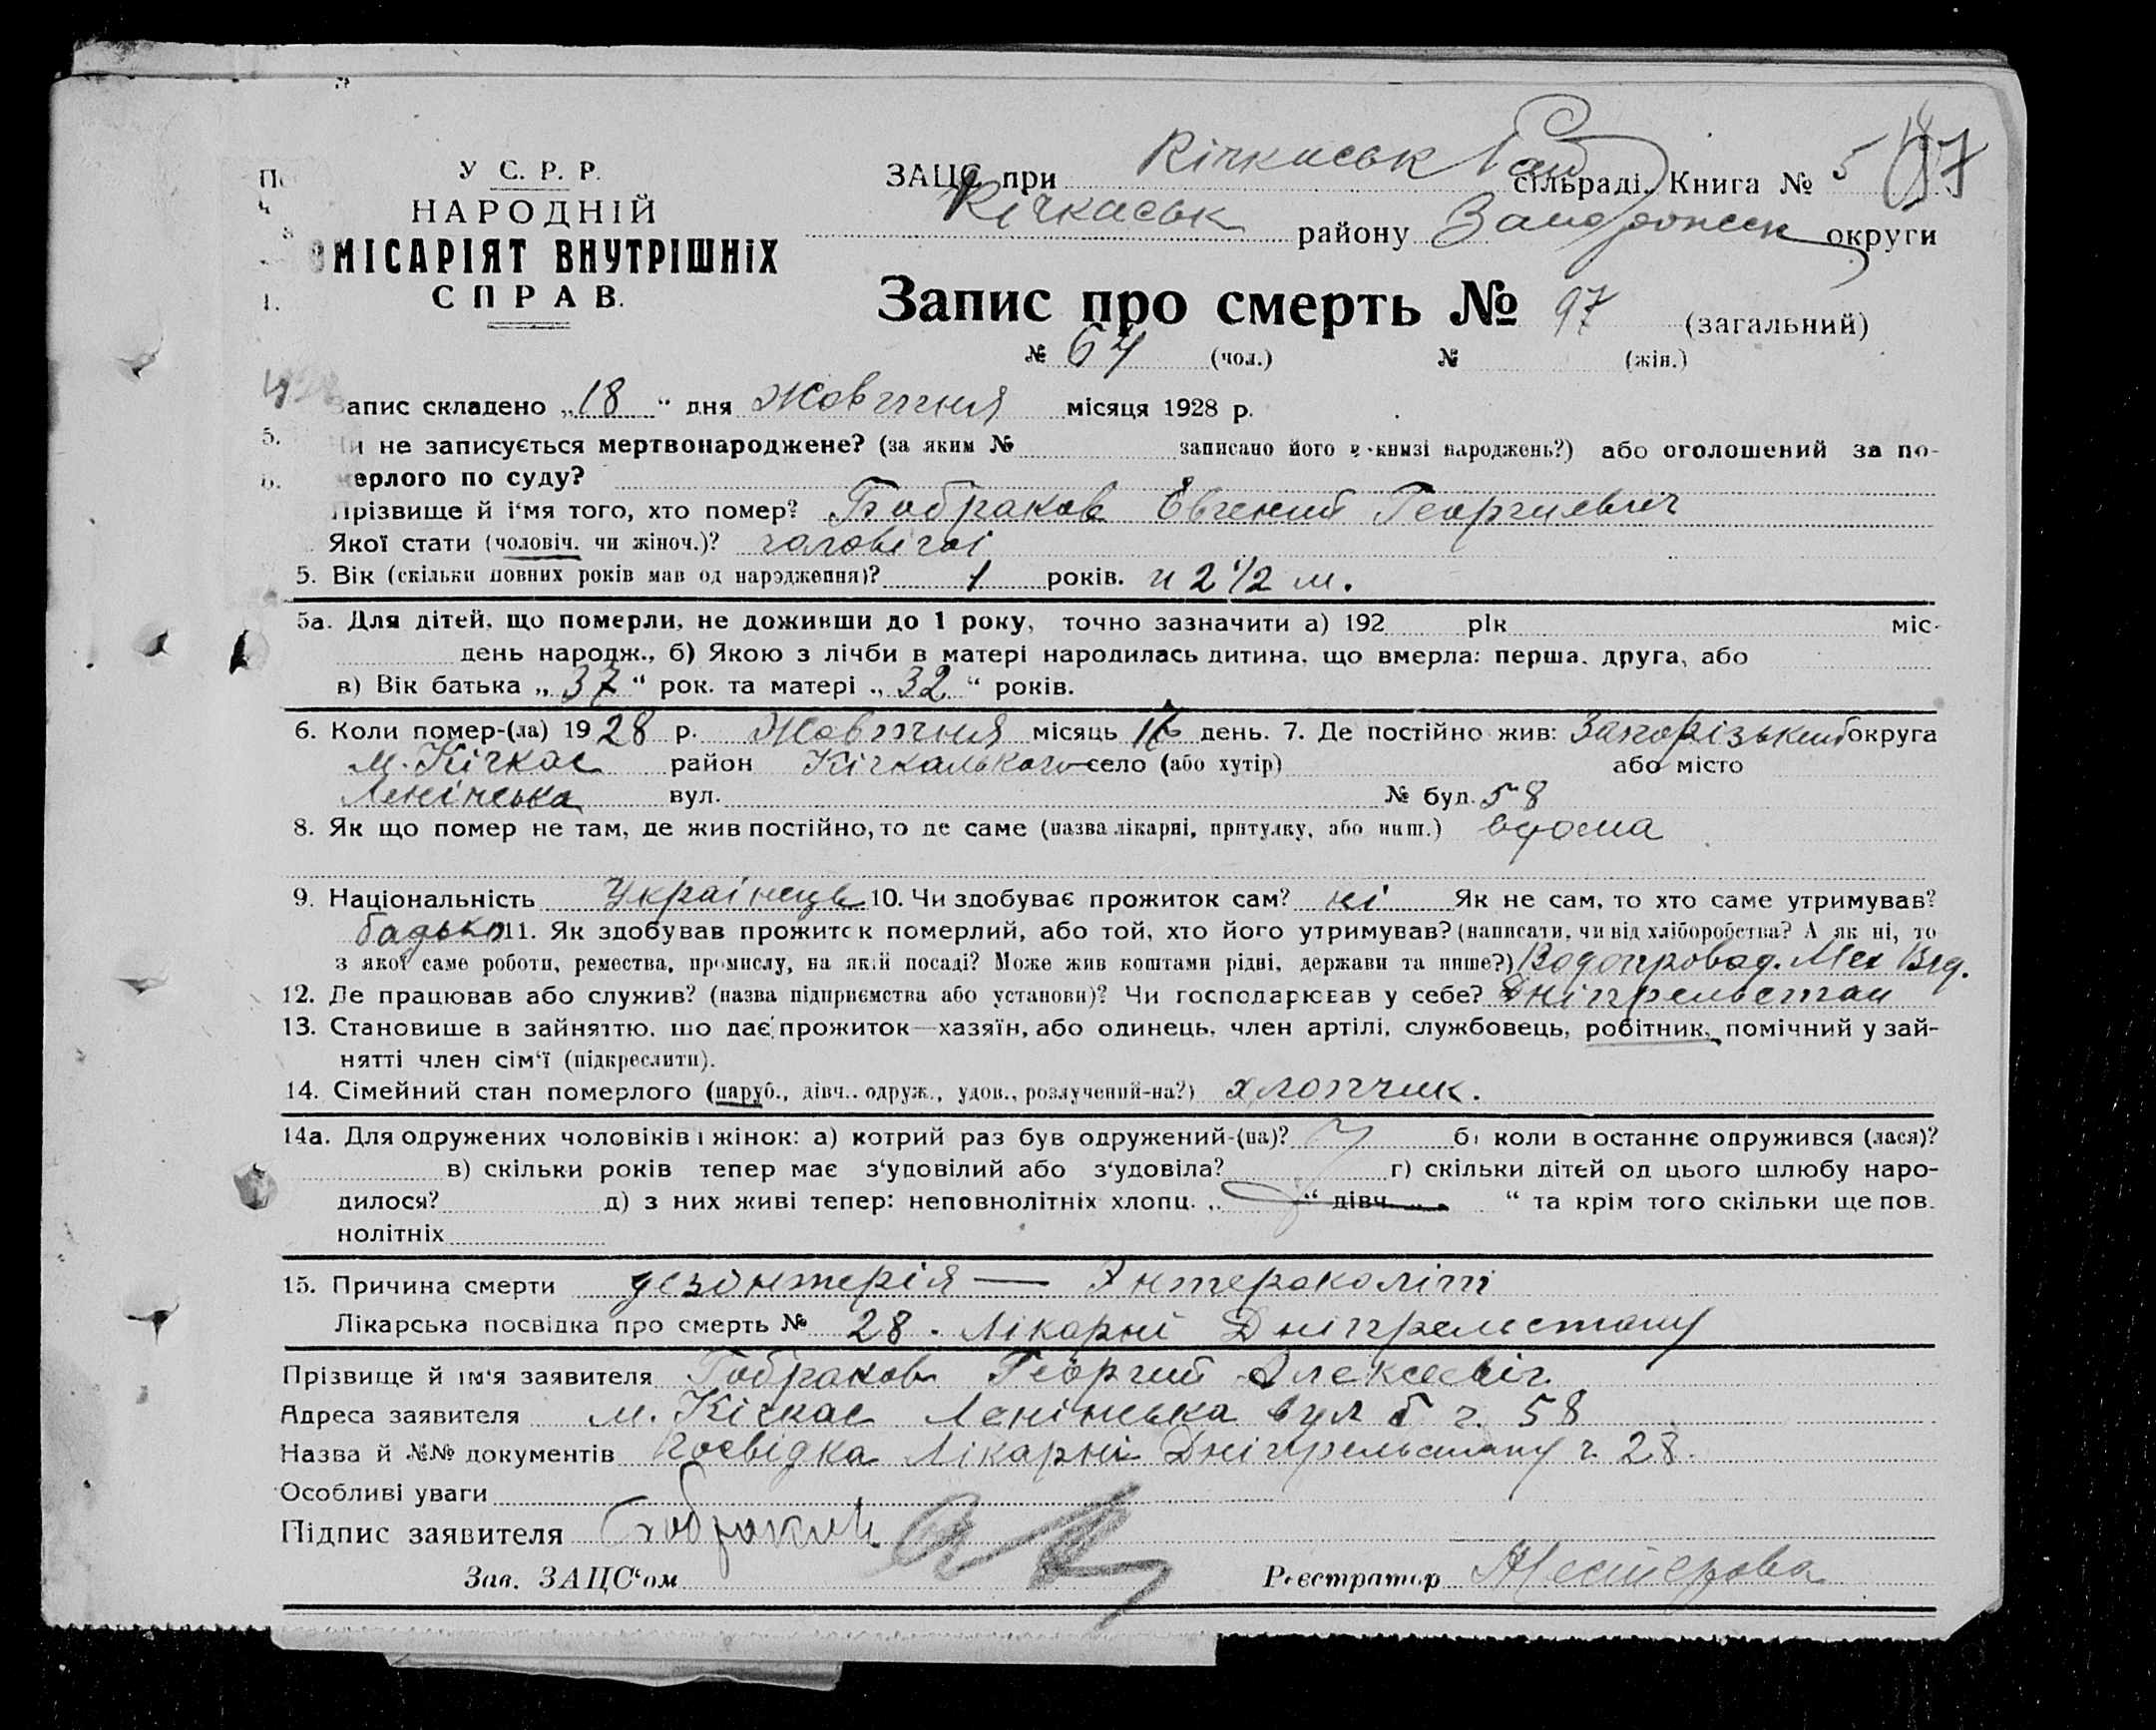 У С. Р. Р.
НАРОДНІЙ
МІСАРІЯТ ВНУТРІШНІХ
СПРАВ.
ЗАЦС при Кічкаськ сільраді. Книга № 5
Кічкаськ району округи
Запис про смерть № 97 (загальний)
№ 64 (чол.) № (жін.)
апис складено „18" дня Жовтня місяця 1928 р.
и не записується мертвонароджене? (за яким № записано його в книзі народжень?) або оголошений за по-
ерлого по суду?
Прізвище й і'мя того, хто помер? Бобраков Євгений Георгиевич
Якої стати (чоловіч. чи жіноч.)? чоловічої
5. Вік (скільки повних років мав од народження)? 1 років. и 2 1/2 м.
5а. Для дітей, що померли, не доживши до 1 року, точно зазначити а) 192 рік міс-
день народж., б) Якою з лічби в матері народилась дитина, що вмерла: перша. друга, або
в) Вік батька „37" рок. та матері „32" років.
6. Коли помер-(ла) 1928 р. Жовтня місяць 16 день. 7. Де постійно жив: Запорізький округа
м. Кічкас район Кічкаського село (або хутір) або місто
Ленінська вул. № буд. 58
8. Як що помер не там, де жив постійно, то де саме (назва лікарні, притулку, або инш.) вдома
9. Національність Українець 10. Чи здобуває прожиток сам? ні Як не сам, то хто саме утримував?
бадько 11. Як здобував прожиток померлий, або той, хто його утримував? (написати, чи від хліборобства? А як ні, то
з якої саме роботи, ремества, промислу, на якій посаді? Може жив коштами рідні, держави та инше?) Водопровод. Мех Від.
12. Де працював або служив? (назва підприємства або установи)? Чи господарював у себе? Дніпрельстан
13. Становище в зайняттю, що дає прожиток—хазяїн, або одинець, член артілі, службовець, робітник, помічний у зай-
нятті член сім'ї (підкреслити).
14. Сімейний стан померлого (паруб., дівч.. одруж., удов., розлучений-на?) хлопчик.
14а. Для одружених чоловіків і жінок: а) котрий раз був одружений-(на)? б) коли востаннє одружився (лася)?
в) скільки років тепер має з'удовілий або з'удовіла? г) скільки дітей од цього шлюбу наро-
дилося? д) з них живі тепер: неповнолітніх хлопц. „ " дівч. „ " та крім того скільки ще пов.
нолітніх
15. Причина смерти дезінтерія — Энтероколіт
Лікарська посвідка про смерть № 28. Лікарні Дніпрельстану
Прізвище й ім'я заявителя Бобраков Георгий Алексеевіч
Адреса заявителя м. Кічкас Ленінська вул б ч. 58
Назва й №№ документів Посвідка Лікарні Дніпрельстану ч. 28.
Особливі уваги
Підпис заявителя Бобраков
Зав. ЗАЦС'ом Реєстратор Нестерова